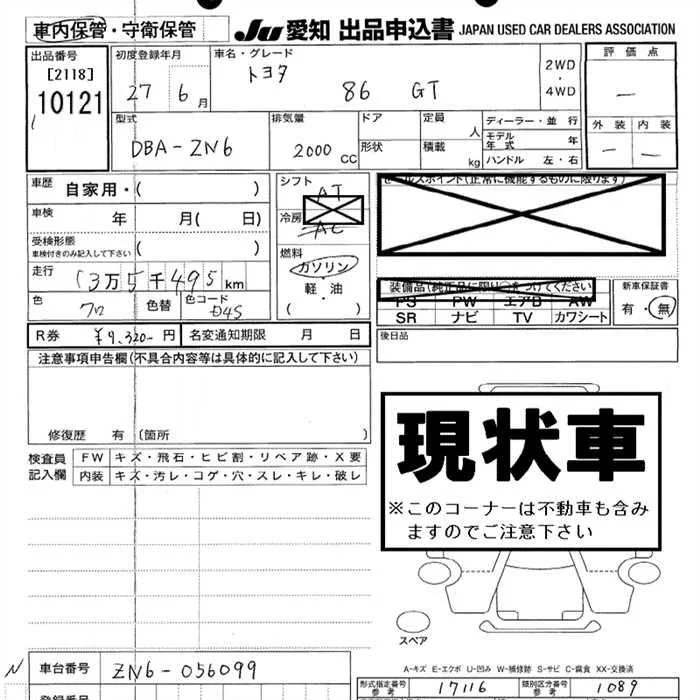 車内保管・守衛保管 Ju 愛知 出品申込書 JAPAN USED CAR DEALERS ASSOCIATION
出品番号 [2118] 10121
初度登録年月 27 6月
車名・グレード トヨタ 86 GT
2WD・4WD
評価点 —
外装 — 内装 —
型式 DBA-ZN6
排気量 2000 CC
ドア 形状
定員 人 積載 kg
ディーラー・並行
モデル年式 年
ハンドル 左・右
車歴 自家用・( )
車検 年 月( 日)
受検形態 車検付きのみ記入して下さい ( )
走行 13万5千495km
色 クロ 色替 色コード D4S
シフト AT
冷房 AC
燃料 ガソリン・軽・油 ( )
セールスポイント(正常に機能するものに限ります)
装備品(純正品に限り○をつけてください)
PS PW エアB AW
SR ナビ TV カワシート
新車保証書 有・無
R券 ¥9,320-円 名変通知期限 月 日
後日品
注意事項申告欄(不具合内容等は具体的に記入して下さい)
修復歴 有 〔箇所 )
検査員記入欄
FW キズ・飛石・ヒビ割・リペア跡・X要
内装 キズ・汚レ・コゲ・穴・スレ・キレ・破レ
現状車
※このコーナーは不動車も含み
ますのでご注意下さい
スペア
A-キズ E-エクボ U-凹み W-補修跡 S-サビ C-腐食 XX-交換済
N 車台番号 ZN6-056099
形式指定番号 参考 17116 類別区分番号 参考 1089
登録番号